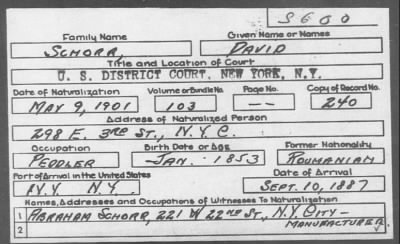 S600
Family Name Given Name or Names
SCHORR, DAVID
Title and Location of Court
U. S. DISTRICT COURT, NEW YORK, N.Y.
Date of Naturalization Volume or Bundle No. Page No. Copy of Record No.
MAY 9, 1901 103 -- 240
Address of Naturalized Person
298 E. 3RD ST., N.Y.C.
Occupation Birth Date or Age Former Nationality
PEDDLER -JAN. 1853 ROUMANIAN
Port of Arrival in the United States Date of Arrival
N.Y. N.Y. SEPT. 10, 1887
Names, Addresses and Occupations of Witnesses To Naturalization
1 ABRAHAM SCHORR, 221 W 22ND ST., N.Y. CITY -
MANUFACTURER.
2